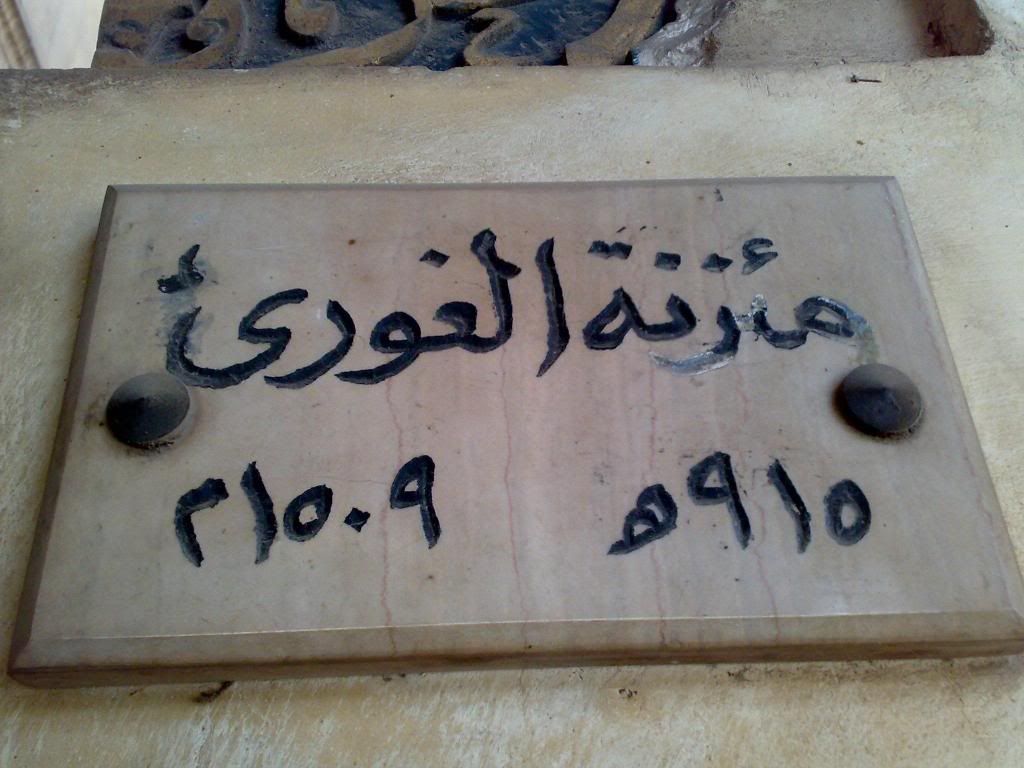 مئذنة الغورئ
٩١٥هـ ١٥٠٩م